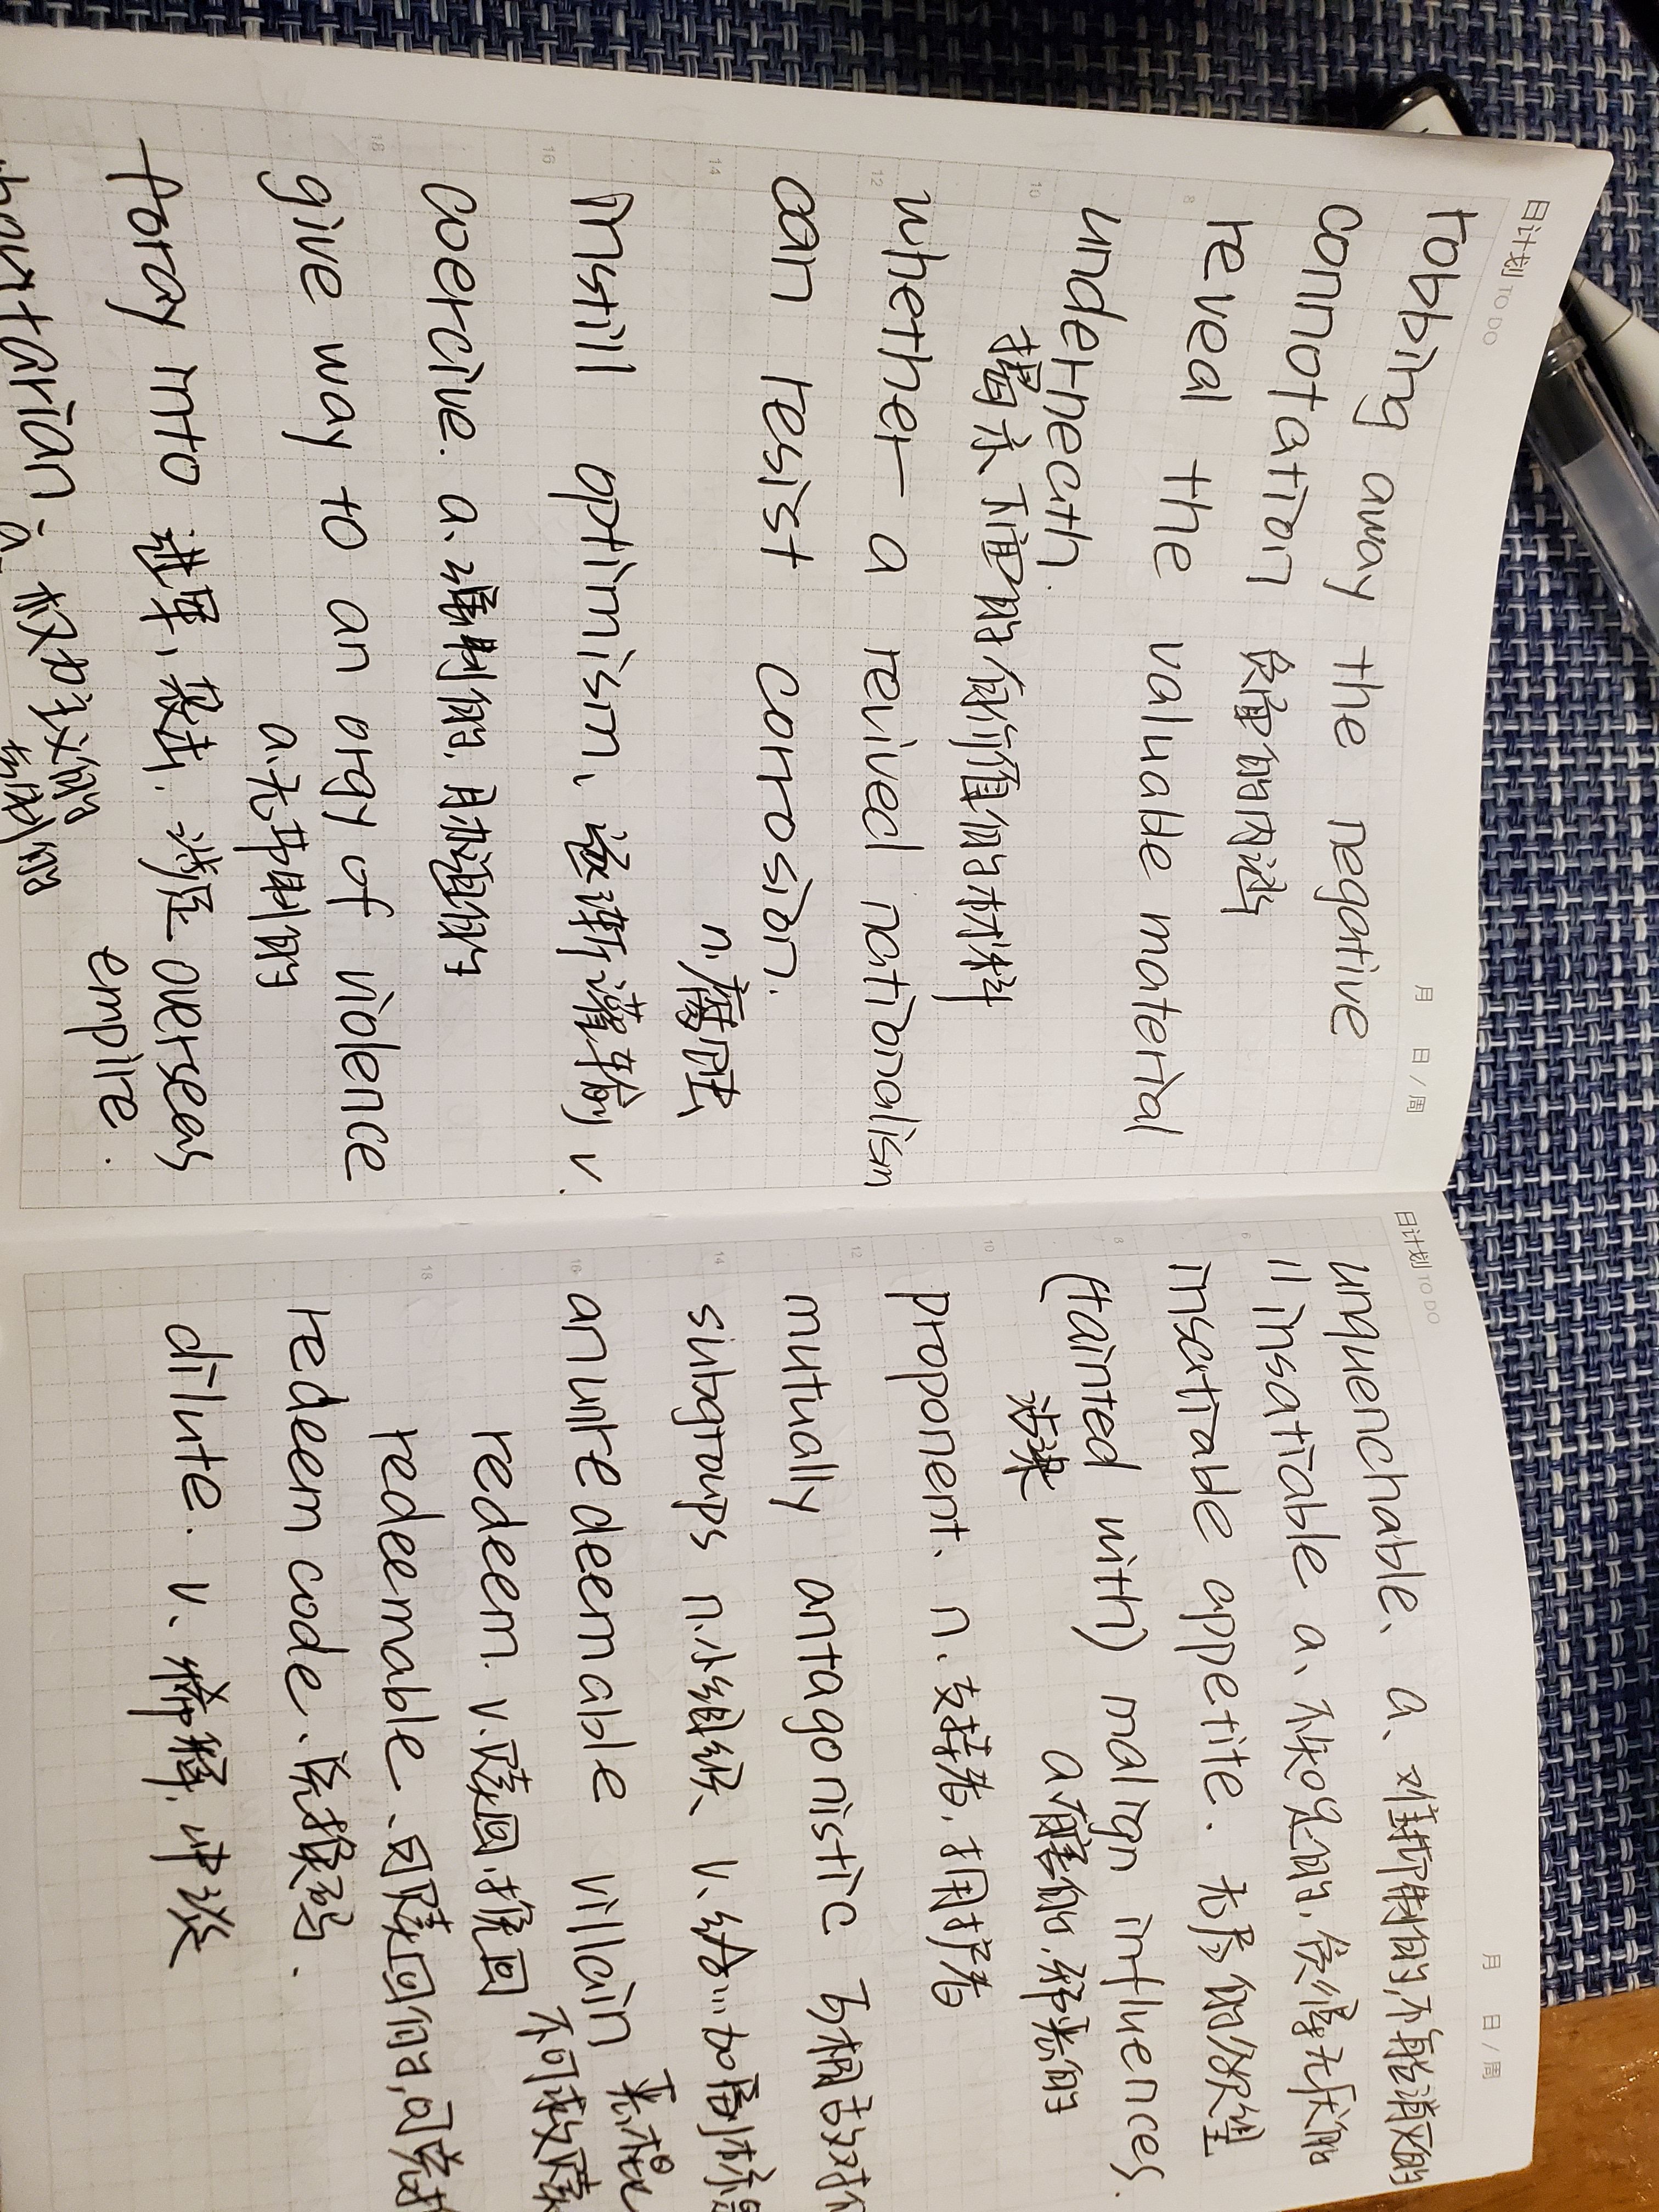 日计划 TO DO
月 日/周
robbing away the negative
connotation 负面的内涵
reveal the valuable material
underneath.
揭示下面的有价值的材料
whether a revived nationalism
can resist corrosion.
n.腐蚀
instill optimism、逐渐灌输 v.
coercive. a、强制的,胁迫的
give way to an orgy of violence
a.无节制的
foray into 进军、袭击. 涉足 overseas
empire.
8
10
12
14
16
18
日计划 TO DO
月 日/周
unquenchable、a、难抑制的,不能消灭的
// insatiable a、不知足的,贪得无厌的
insatiable appetite. 无尽的欲望
(tainted with) malign influences.
沾染 a.有害的,邪恶的
proponent、n、支持者,拥护者
mutually antagonistic 互相敌对
subgroups n.小组织、v、给…加副标
an unredeemable villain
不可救赎
redeem. v.赎回,挽回
redeemable、可赎回的,可兑换
redeem code、兑换码.
dilute. v、稀释,冲淡
6
8
10
12
14
16
18